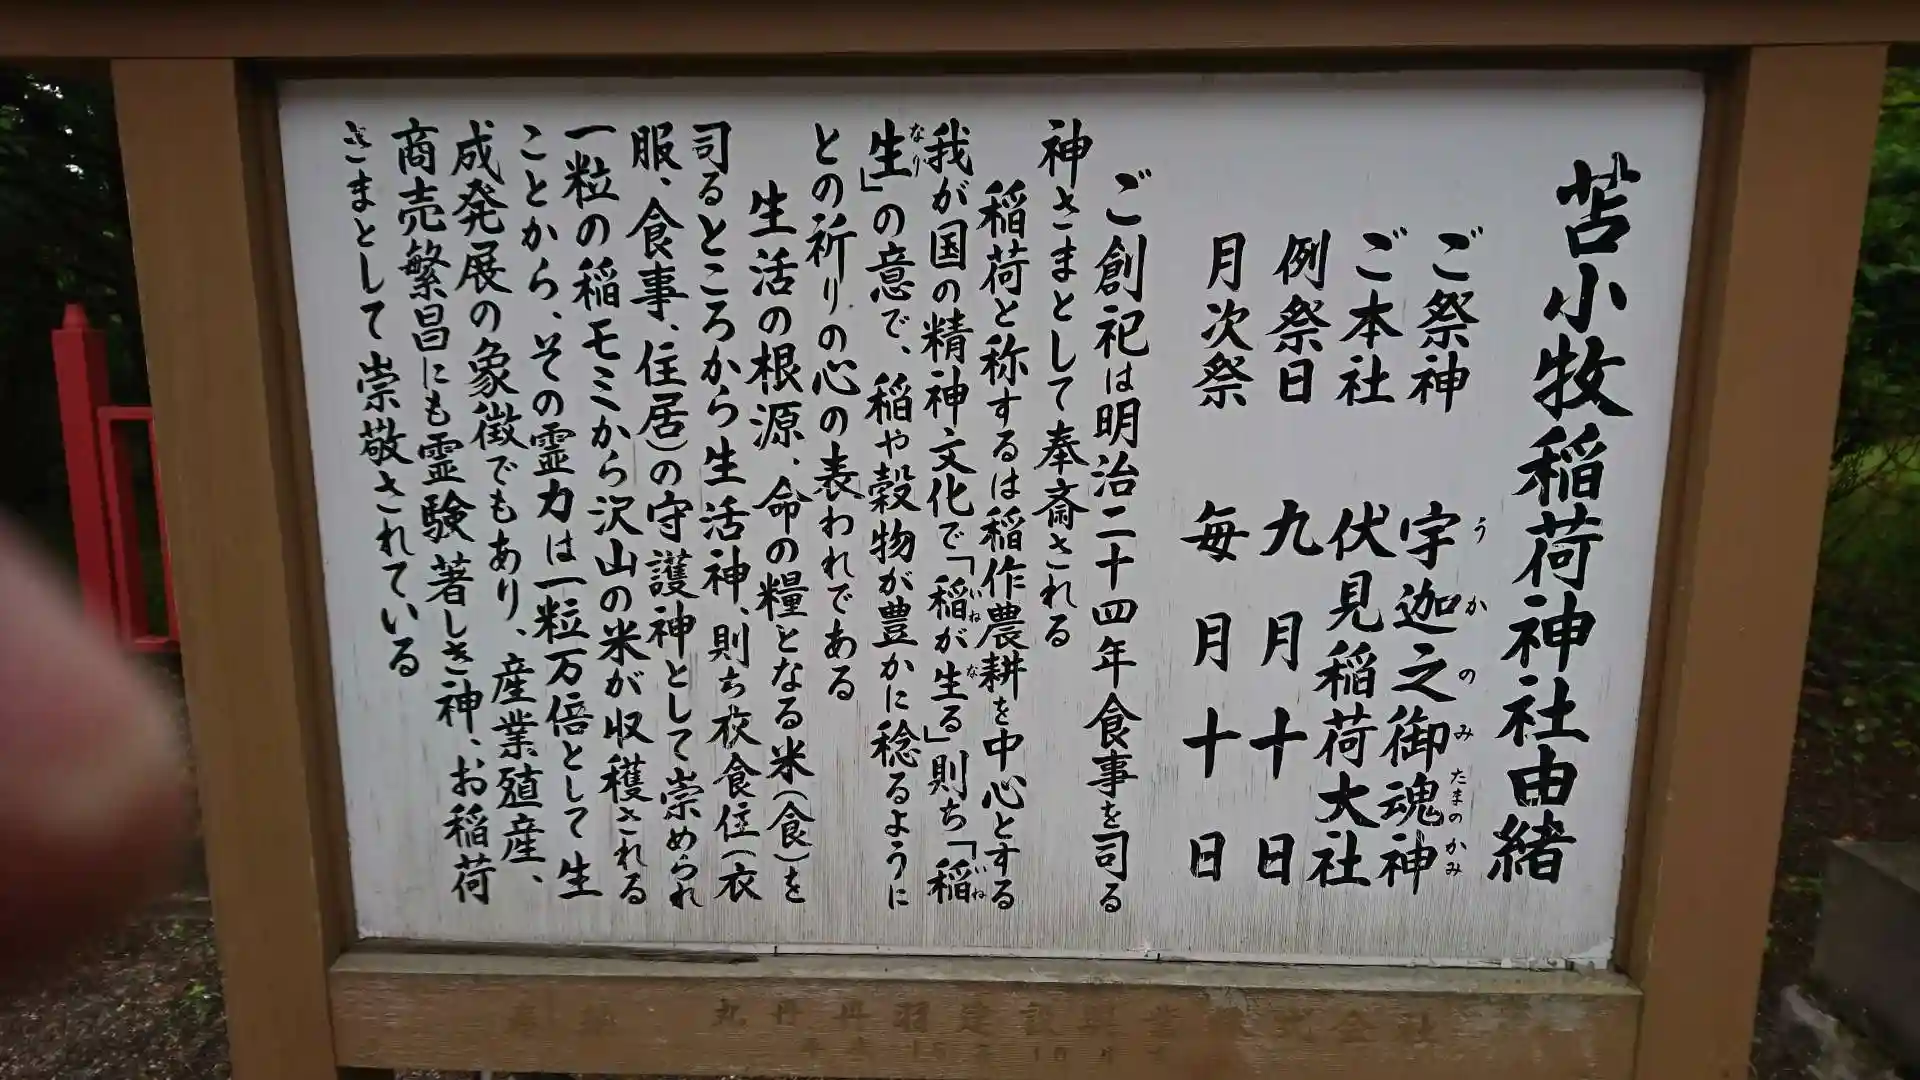 苫小牧稲荷神社由緒
ご祭神 宇迦之御魂神
うかのみたまのかみ
ご本社 伏見稲荷大社
例祭日 九月十日
月次祭 毎月十日
ご創祀は明治二十四年食事を司る
神さまとして奉斎される
稲荷と称するは稲作農耕を中心とする
我が国の精神文化で「稲が生る」則ち「稲
いね な いね
生」の意で、稲や穀物が豊かに稔るように
なり
との祈りの心の表われである
生活の根源、命の糧となる米(食)を
司るところから生活神、則ち衣食住(衣
服、食事、住居)の守護神として崇められ
一粒の稲モミから沢山の米が収穫される
ことから、その霊力は一粒万倍として生
成発展の象徴でもあり、産業殖産、
商売繁昌にも霊験著しき神、お稲荷
さまとして崇敬されている
丸丹丹羽建設興業株式会社